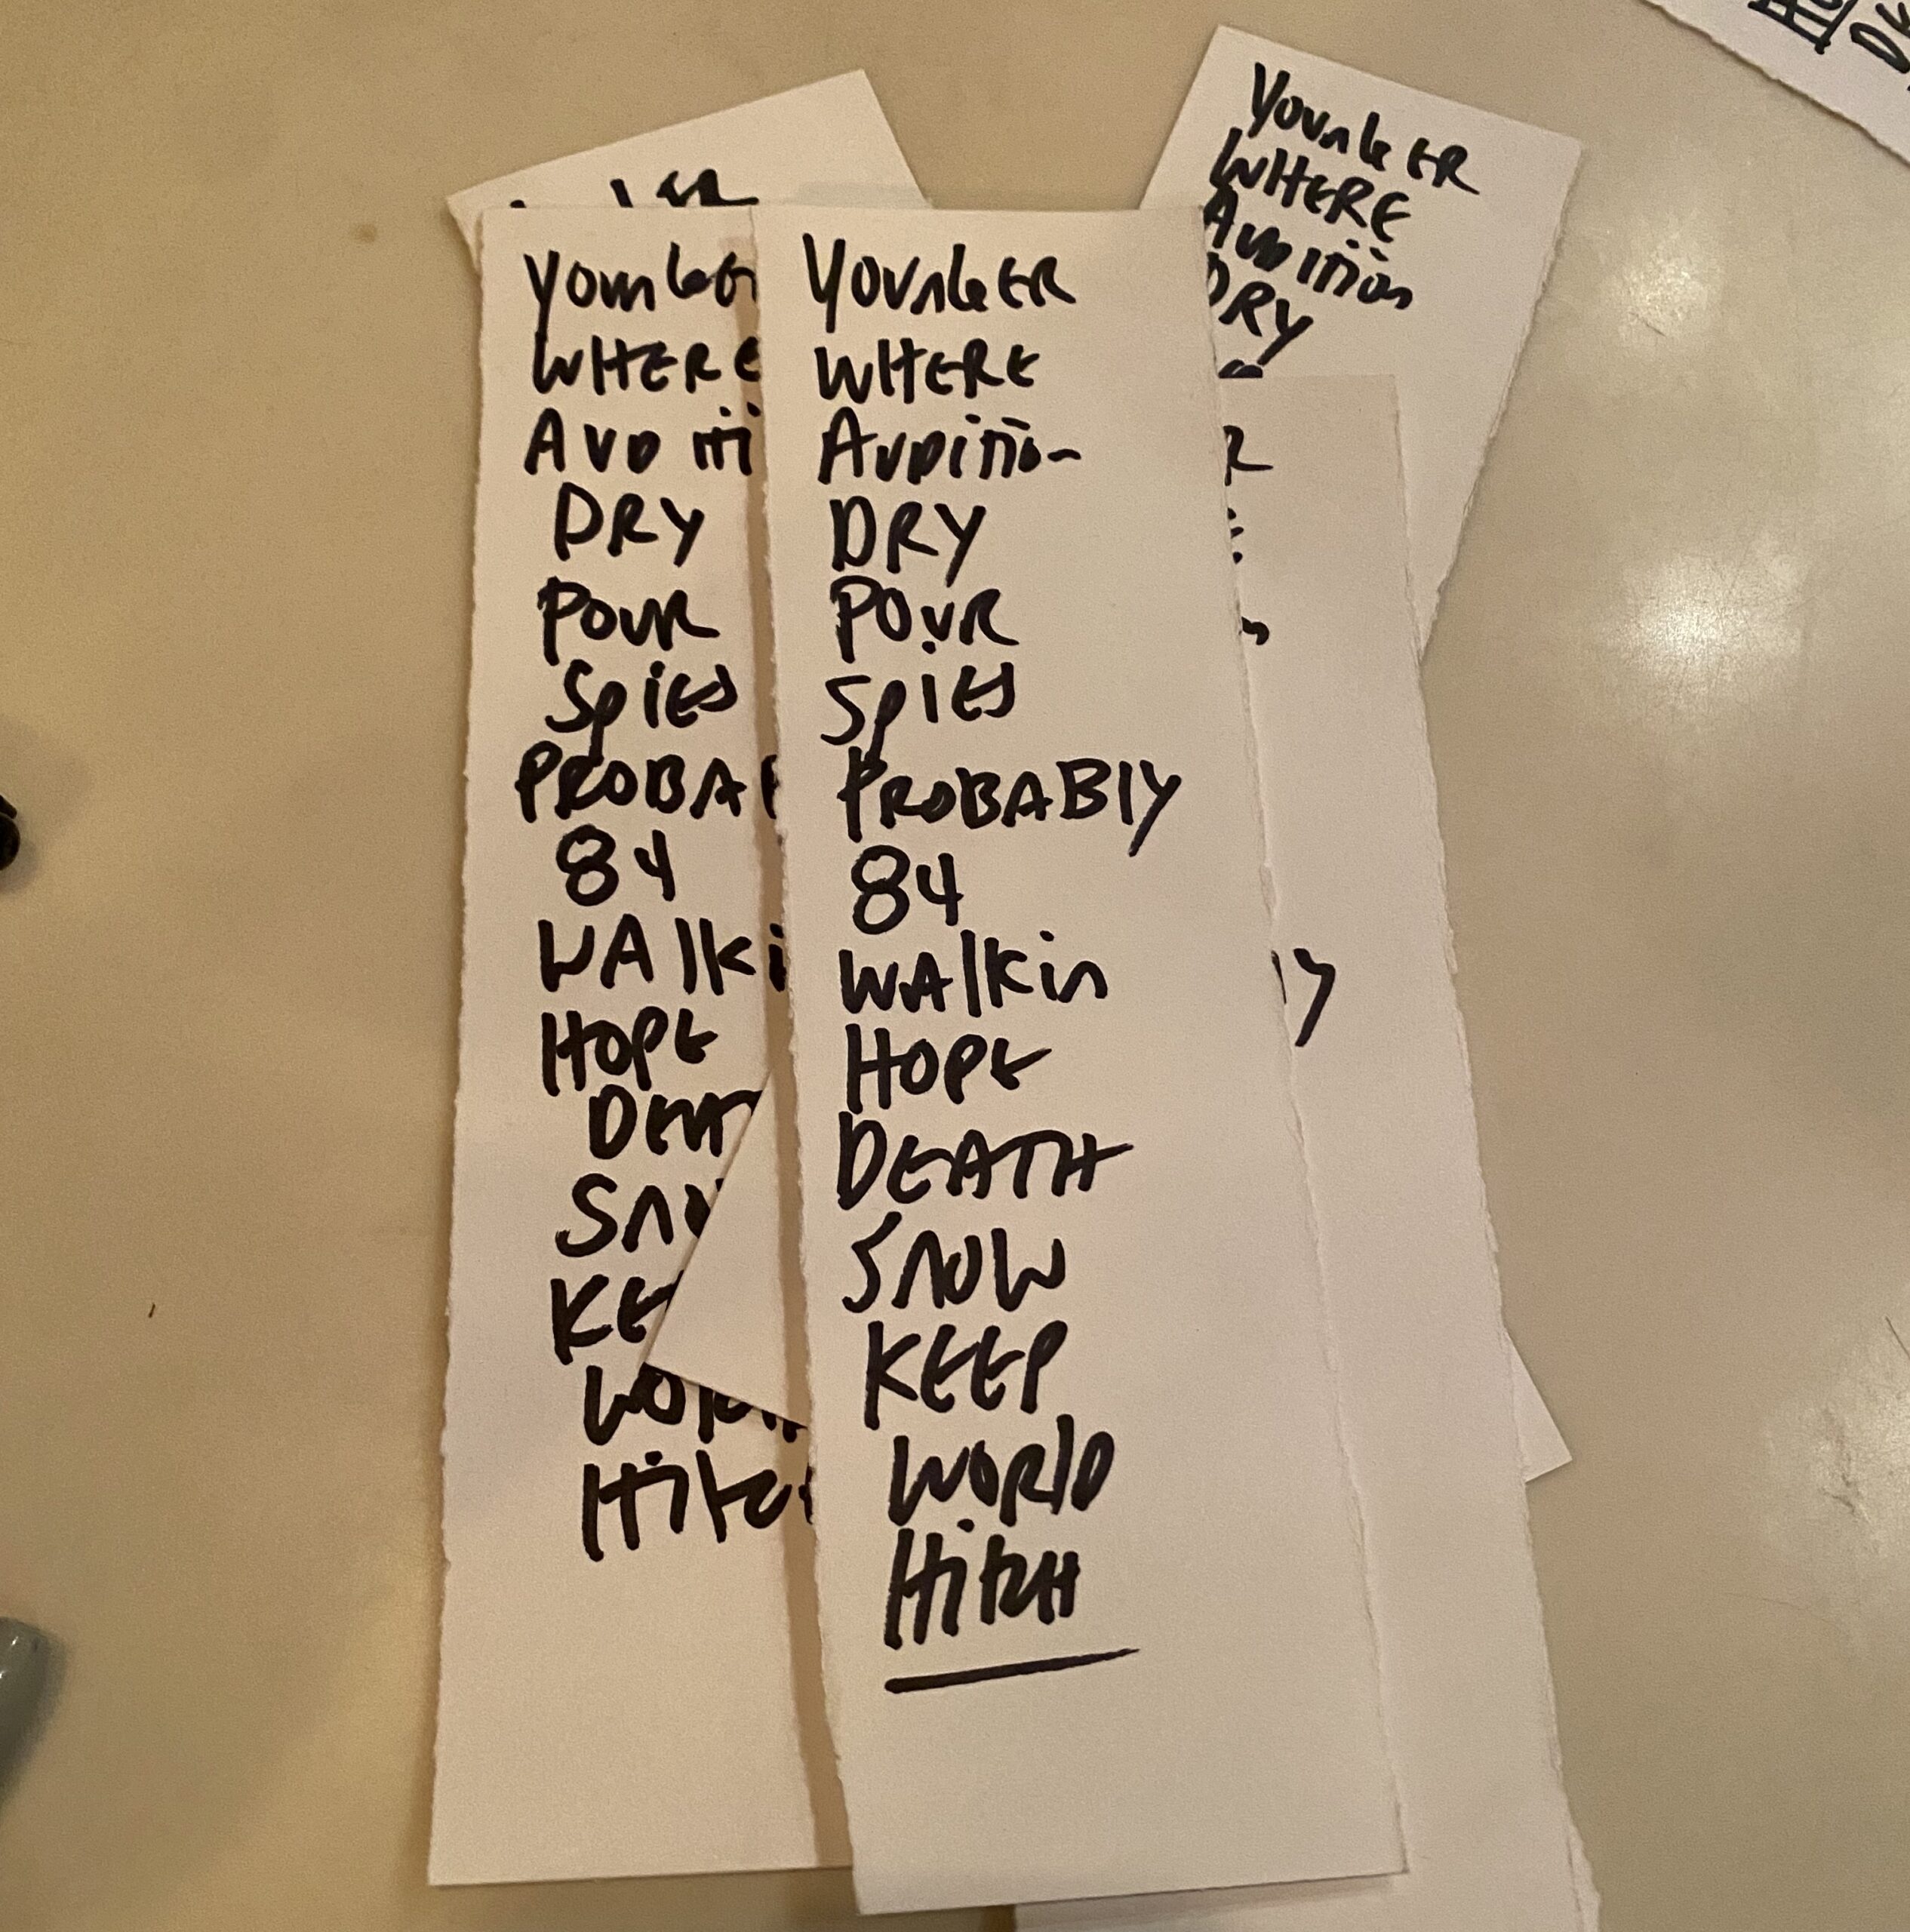 YOUNGER
WHERE
AUDITION
DRY
POUR
SPIES
PROBABLY
84
WALKIN
HOPE
DEATH
SNOW
KEEP
WORLD
HITCH
YOUNGER
WHERE
AUDITI
DRY
POUR
SPIES
PROBAB
84
WALKI
HOPE
DEAT
SNO
KE
WORL
HITC
YOUNGER
WHERE
AUDITION
DRY